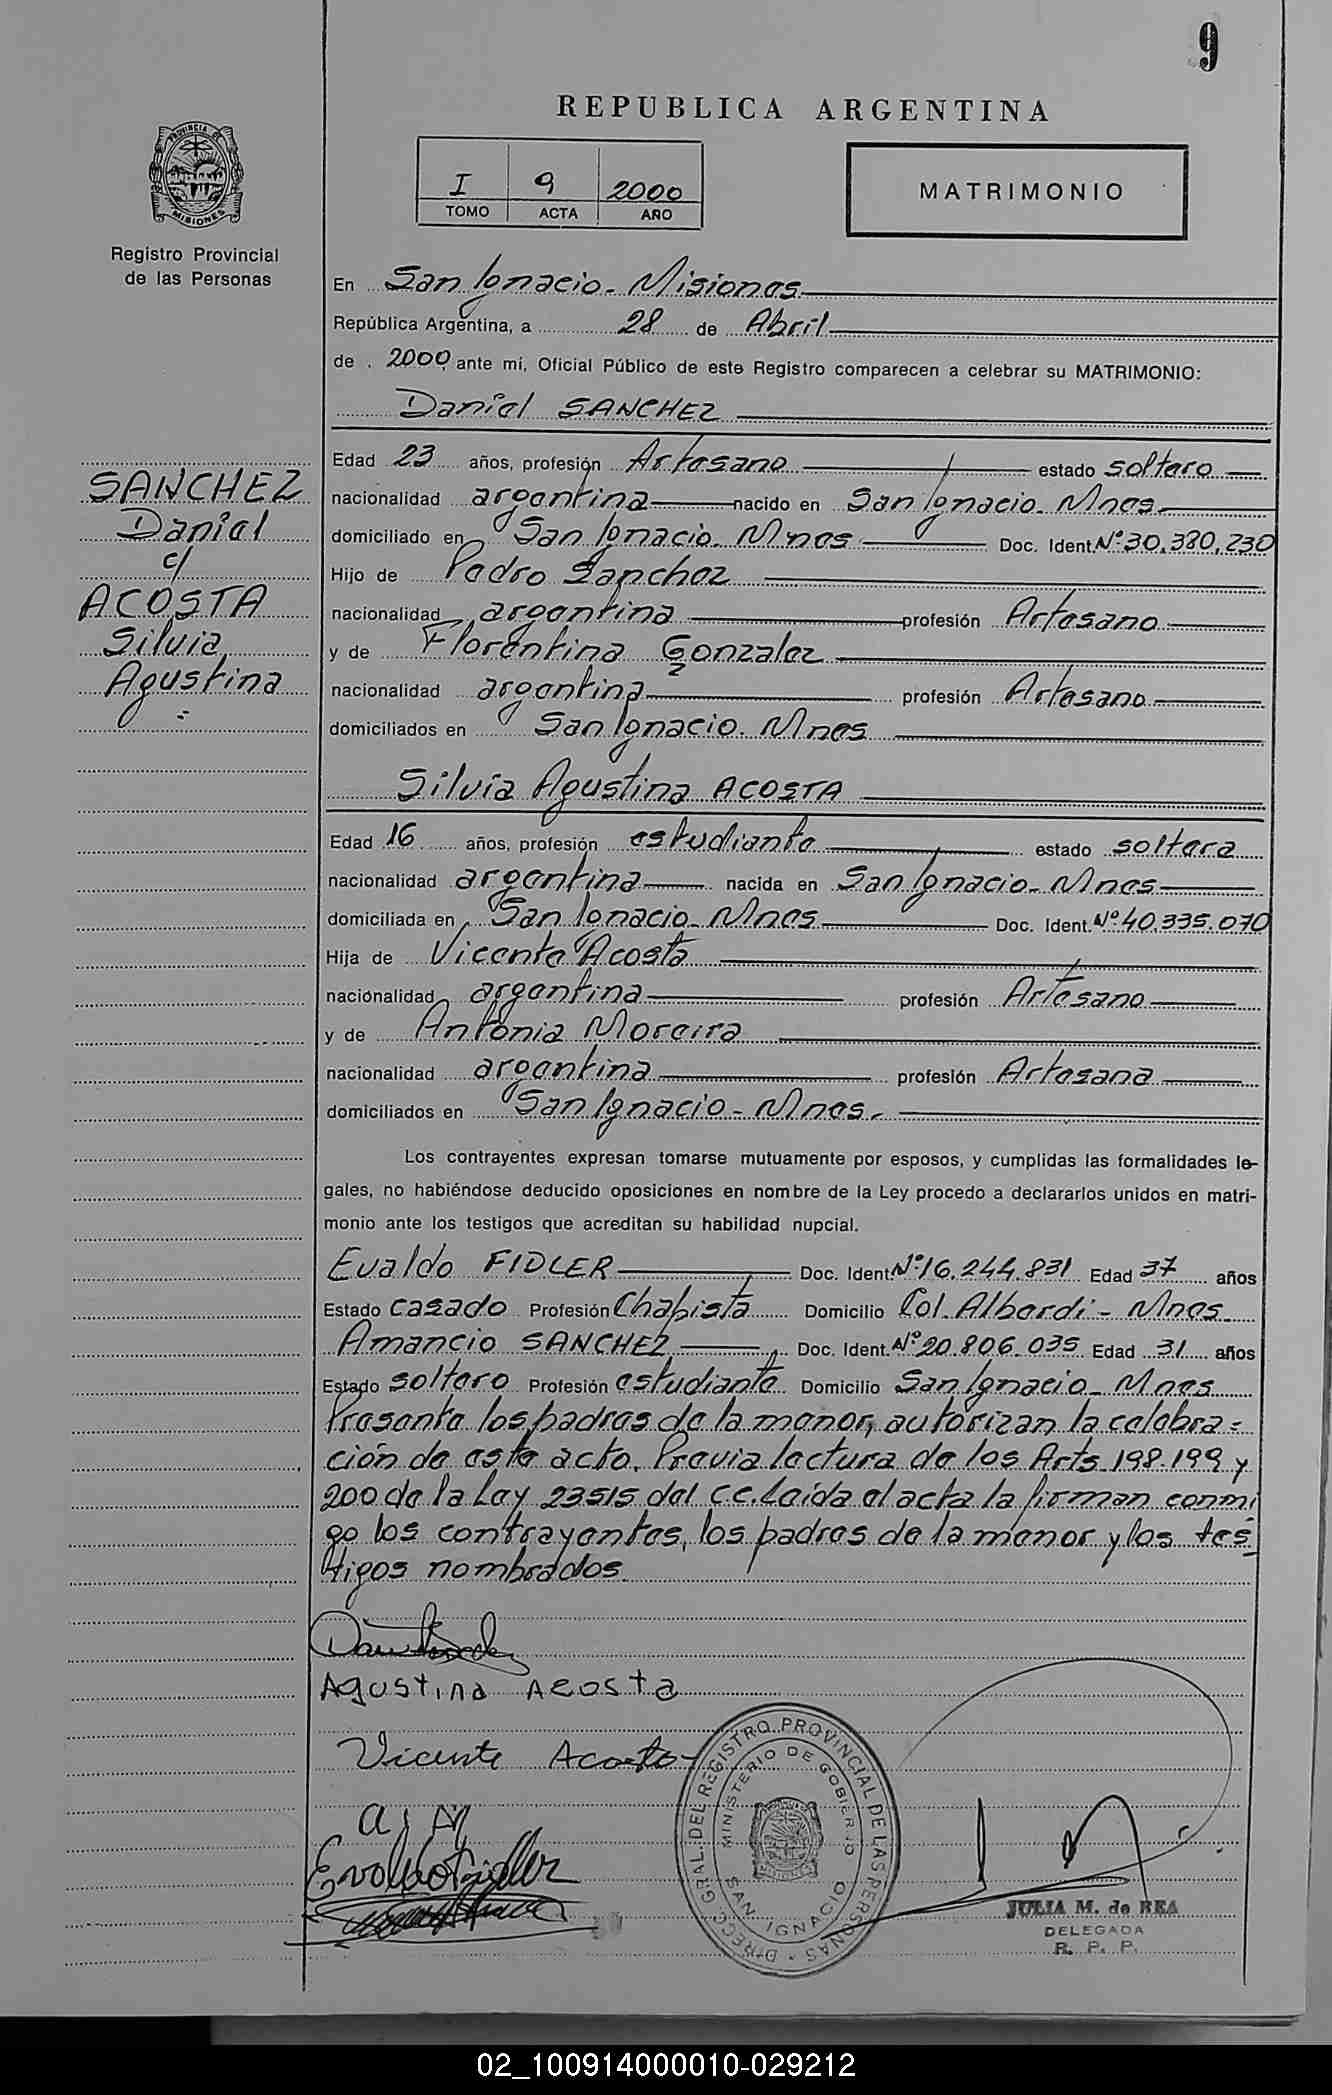 9
REPUBLICA ARGENTINA
PROVINCIA DE
MISIONES
I 9 2000
TOMO ACTA AÑO
MATRIMONIO
Registro Provincial
de las Personas
En San Ignacio - Misiones
República Argentina, a 28 de Abril
de 2000 ante mí, Oficial Público de este Registro comparecen a celebrar su MATRIMONIO:
Daniel SANCHEZ
SANCHEZ
Daniel
c/
ACOSTA
Silvia
Agustina
Edad 23 años, profesión Artesano estado soltero
nacionalidad argentina nacido en San Ignacio. Mnes.
domiciliado en San Ignacio. Mnes Doc. Ident. Nº 30.380.230
Hijo de Pedro Sanchez
nacionalidad argentina profesión Artesano
y de Florentina Gonzalez
nacionalidad argentina profesión Artesano
domiciliados en San Ignacio. Mnes
Silvia Agustina ACOSTA
Edad 16 años, profesión estudiante estado soltera
nacionalidad argentina nacida en San Ignacio - Mnes
domiciliada en San Ignacio - Mnes Doc. Ident. Nº 40.335.070
Hija de Vicente Acosta
nacionalidad argentina profesión Artesano
y de Antonia Moreira
nacionalidad argentina profesión Artesana
domiciliados en San Ignacio - Mnes.
Los contrayentes expresan tomarse mutuamente por esposos, y cumplidas las formalidades le-
gales, no habiéndose deducido oposiciones en nombre de la Ley procedo a declararlos unidos en matri-
monio ante los testigos que acreditan su habilidad nupcial.
Evaldo FIDLER Doc. Ident. Nº 16.244.831 Edad 37 años
Estado casado Profesión Chapista Domicilio Col. Alberdi - Mnes.
Amancio SANCHEZ Doc. Ident. Nº 20.806.035 Edad 31 años
Estado soltero Profesión estudiante Domicilio San Ignacio - Mnes
Presente los padres de la menor, autorizan la celebra=
ción de este acto. Previa lectura de los Arts 198-199 y
200 de la Ley 23515 del C.C. Leída el acta la firman conmi
go los contrayentes, los padres de la menor y los tes
tigos nombrados.
Agustina Acosta
Vicente Acosta
a. M
Evaldo Fidler
DIRECC. GRAL. DEL REGISTRO PROVINCIAL DE LAS PERSONAS
MINISTERIO DE GOBIERNO
SAN IGNACIO
MISIONES
JULIA M. de REA
DELEGADA
R. P. P.
02_100914000010-029212